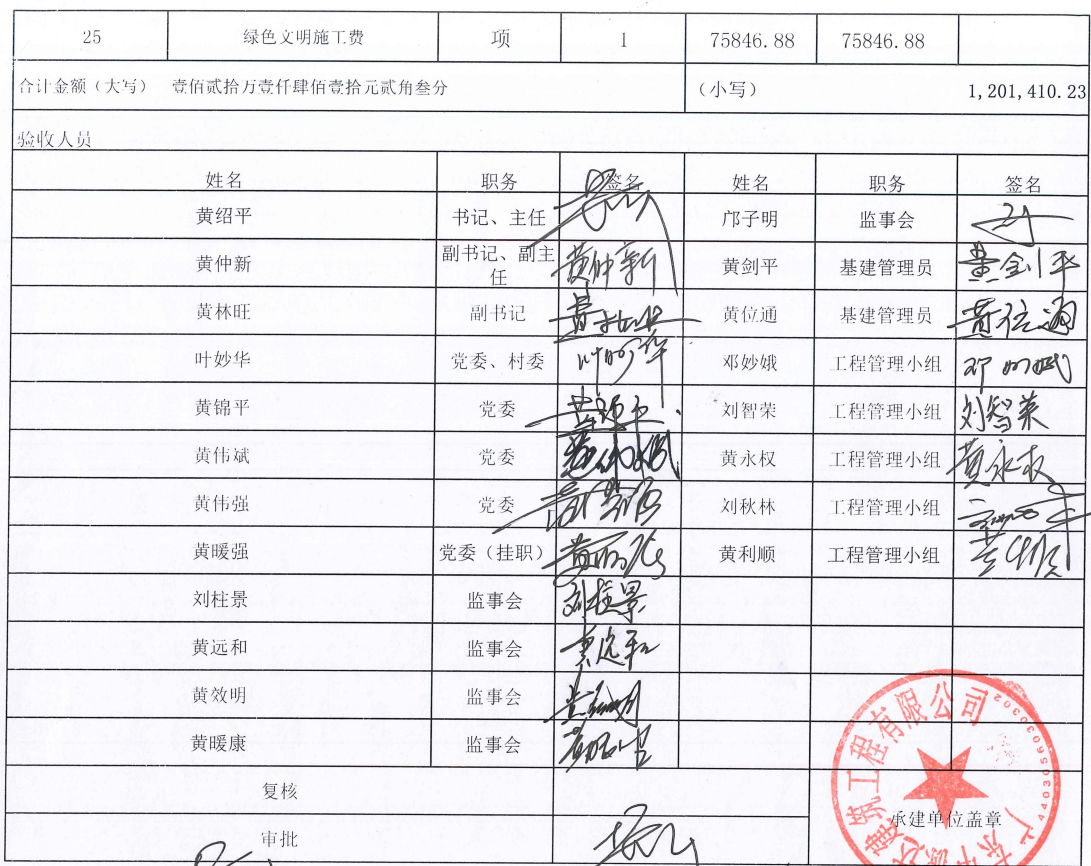 25 绿色文明施工费 项 1 75846.88 75846.88
合计金额（大写） 壹佰贰拾万壹仟肆佰壹拾元贰角叁分 （小写） 1,201,410.23
验收人员
姓名 职务 签名 姓名 职务 签名
黄绍平 书记、主任 邝子明 监事会
黄仲新 副书记、副主任 黄仲新 黄剑平 基建管理员 黄剑平
黄林旺 副书记 黄位通 基建管理员 黄位通
叶妙华 党委、村委 叶妙华 邓妙娥 工程管理小组 邓妙娥
黄锦平 党委 黄锦平 刘智荣 工程管理小组 刘智荣
黄伟斌 党委 黄伟斌 黄永权 工程管理小组 黄永权
黄伟强 党委 刘秋林 工程管理小组
黄暖强 党委（挂职） 黄利顺 工程管理小组
刘柱景 监事会 刘柱景
黄远和 监事会 黄远和
黄效明 监事会 黄效明
黄暖康 监事会
复核
审批
承建单位盖章
建筑工程有限公司